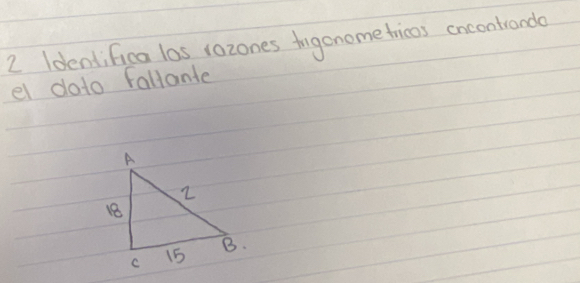 2 Identifica las razones trigonometricas encontrando
el dato faltante
A
18
2
C
15
B.